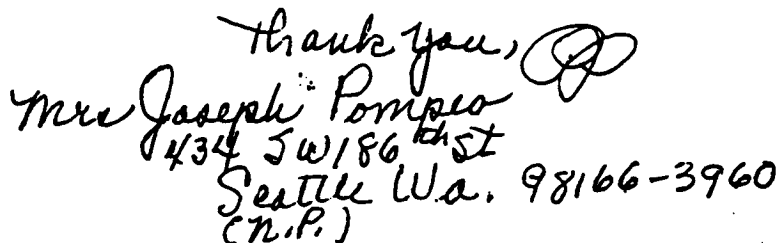 Thank you,
Mrs Joseph Pompeo
434 SW 186th St
Seattle Wa. 98166-3960
(N.P.)